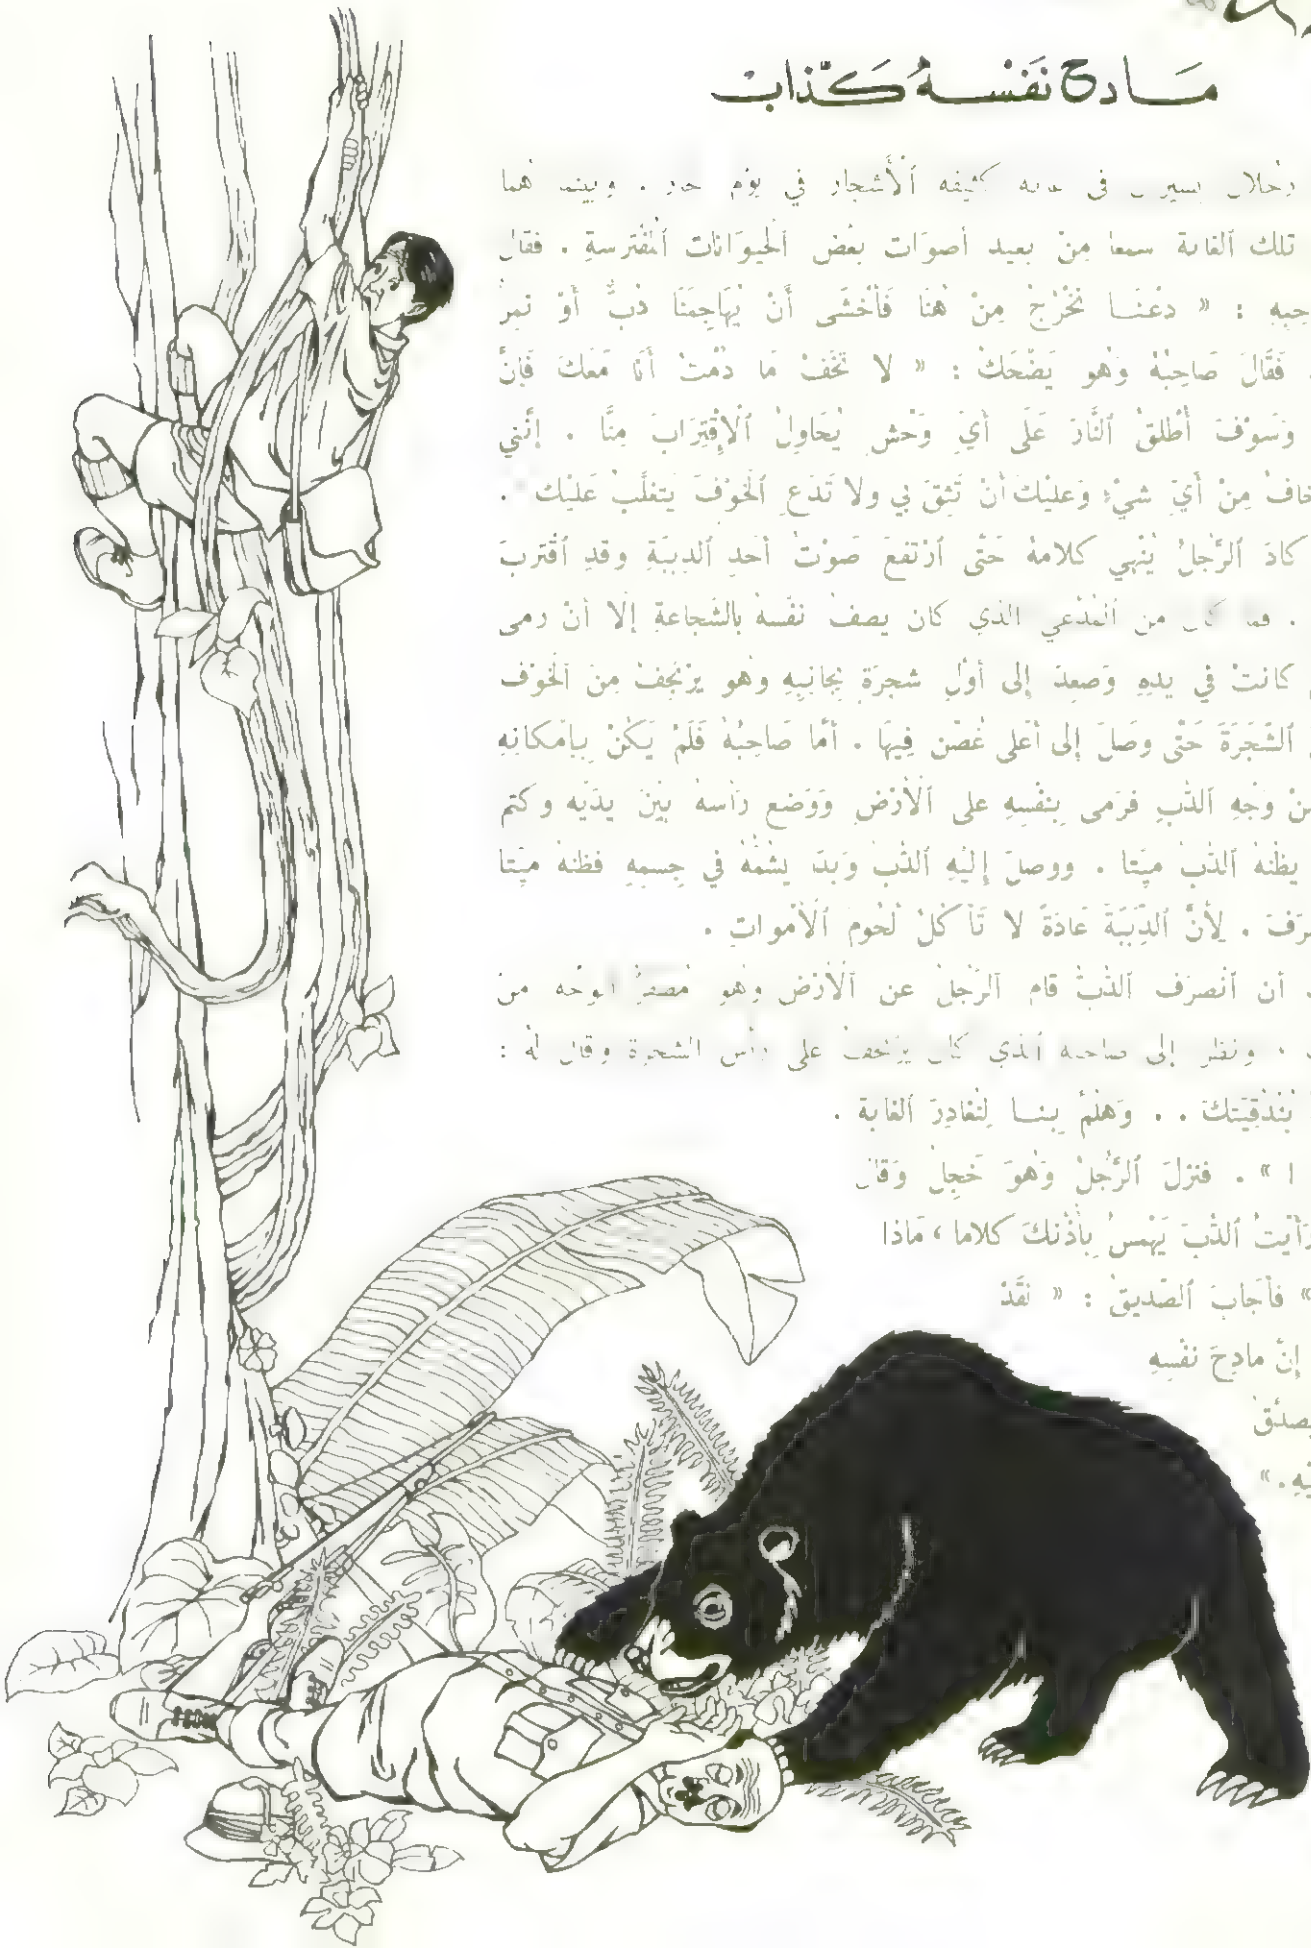 مَادِحُ نَفْسِهِ كَذَّابٌ
يسير في كثيفة ٱلْأَشجار في يوم وبينما هُما
تلك ٱلغابة سمعا مِنْ بعيد أصوَات بعْض ٱلحيوَانات ٱلمُفْترسةِ . فقال
: « دعْنَــا نَخْرُجْ مِنْ هُنَا فَأَخْشَى أَنْ يُهَاجِمَنَا دُبٌّ أَوْ نمِرٌ
فَقَالَ صَاحِبُهُ وَهُو يَضْحَكُ : « لا تَخَفْ مَا دُمْتُ أَنَا مَعَكَ فَإِنَّ
وَسَوْفَ أُطْلِقُ ٱلنَّارَ عَلَى أَيِّ وَحْشٍ يُحَاوِلُ ٱلْاِقْتِرَابَ مِنَّا . إِنَّنِي
مِنْ أَيِّ شَيْءٍ وَعليْك أنْ تَثِقَ بي ولا تَدَع ٱلخوْفَ يتغلَّب عَليْك .
كادَ ٱلرَّجُلُ يُنْهي كلامهُ حَتَّى ٱرْتفعَ صَوْتُ أحَدِ ٱلدِببَةِ وقدِ ٱقْتربَ
. فما كان من ٱلمُدَّعي الذي كان يصفُ نفْسهُ بالشَّجاعةِ إلا أنْ رمى
كانتْ في يدِهِ وَصعِدَ إلى أوَّلِ شجرَةٍ بجانِبِهِ وهُو يرْتجفُ مِنَ ٱلخوْف
ٱلشَّجَرَةَ حَتَّى وصَلَ إلى أعْلى غُصْنٍ فِيهَا . أمَّا صَاحِبُهُ فَلَمْ يَكُنْ بِإمْكانِهِ
وَجْهِ ٱلدُّبِّ فرَمى بِنفْسِهِ على ٱلْأَرْضِ وَوَضع رَأسهُ بيْن يدَيْه وكتم
يظُنّهُ ٱلدُّبُّ ميِّتا . ووصلَ إليْهِ ٱلدُّبُّ وَبدَ يشُمُّهُ في جِسمِهِ فظنهُ ميِّتا
. لِأَنَّ ٱلدِّبَبَةَ عَادَةً لا تَأْكُلُ لُحُومَ ٱلْأَمْوات .
أن ٱنصرَف ٱلدُّبُّ قام ٱلرَّجُلُ عن ٱلْأَرْض وهُو مُصفرُّ ٱلوجْه من
. ونظر إلى صاحبه ٱلذي كان يرْتجفُ على رأس الشجرة وقال لهُ :
بُنْدُقِيَّتكَ . . وَهلُمَّ بِنــا لِنُغَادِرَ ٱلغابة .
» . فنزلَ ٱلرَّجُلُ وَهُوَ خَجِلٌ وَقال
ٱلدُّبَّ يَهْمِسُ بِأُذُنكَ كلاما ، مَاذا
» فأجَابَ ٱلصَّديقُ : « لقَدْ
إنَّ مادِحَ نفْسِهِ